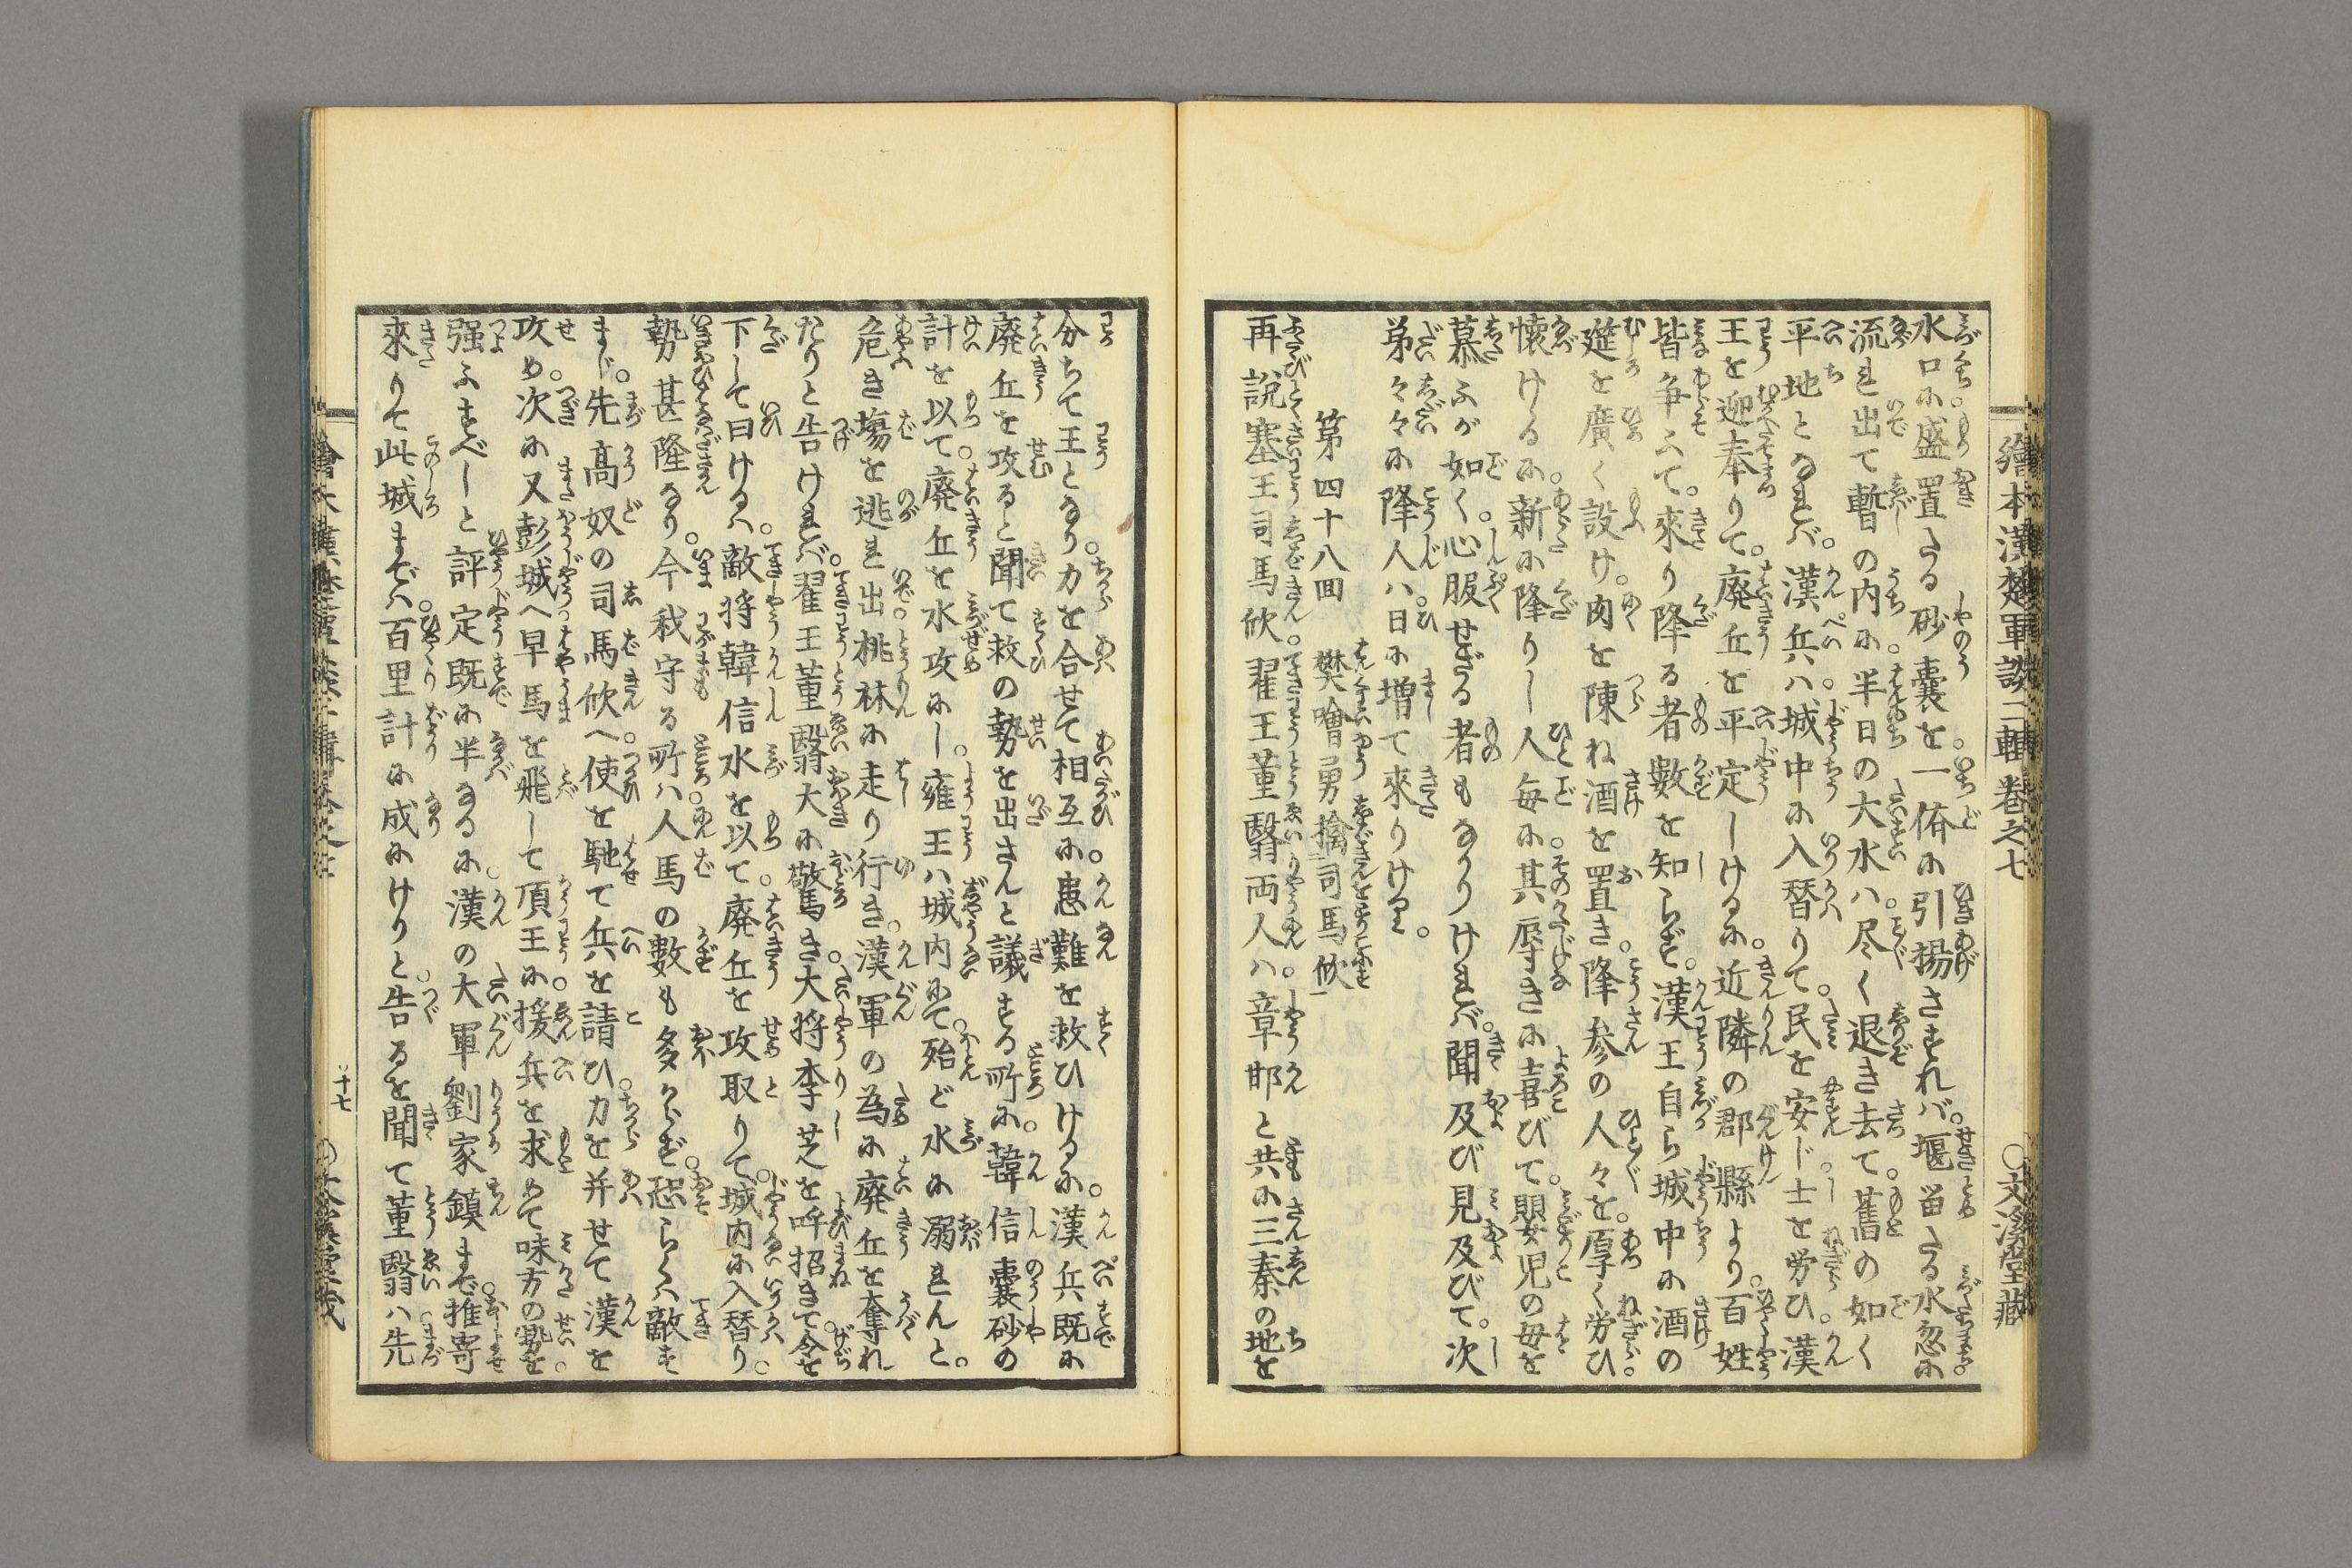 繪本漢楚軍談二輯巻之七 〇文溪堂藏
水口に盛置たる砂嚢を一偹に引揚さすれバ。堰畄たる水忽に
流れ出て暫の内に半日の大水ハ尽く退き去て。舊の如く
平地となれバ。漢兵ハ城中に入替りて。民を安じ士を労ひ。漢
王を迎奉りて。廃丘を平定しけるに。近隣の郡縣より。百姓
皆争ふて。來り降る者數を知らず。漢王自ら城中に酒の
筵を廣く設け。肉を陳ね酒を置き。降参の人々を。厚く労ひ
懐けるに。新に降りし人毎に。其厚きに喜びて。嬰児の母を
慕ふが如く。心服せざる者もなかりけれバ。聞及び見及びて。次
第々々に降人ハ。日に増て來りける。
第四十八回 樊噲勇擒司馬欣
再説塞王司馬欣。翟王董翳両人ハ。章邯と共に三秦の地を
分ちて王となり。力を合せて相互に。患難を救ひけるに。漢兵既に
廃丘を攻ると聞て。救の勢を出さんと議する所に。韓信嚢砂の
計を以て。廃丘を水攻にし。雍王ハ城内にて。殆ど水に溺れんと。
危き塲を逃れ出。桃林に走り行き。漢軍の為に廃丘を奪れ
たりと告けれバ。翟王董翳大に驚き。大将李芝を呼招きて。令を
下して曰けるハ。敵将韓信水を以て。廃丘を攻取りて。城内に入替り
勢甚隆なり。今我守る所ハ。人馬の數も多からず。恐らくハ敵す
まじ。先高奴の司馬欣へ。使を馳て兵を請ひ。力を并せて漢を
攻め。次に又彭城へ。早馬を飛して項王に。援兵を求めて味方の勢を
强ふすべしと評定既に半なるに。漢の大軍劉家鎮まで。推寄
來りて此城までハ。百里計に成にけりと。告るを聞て董翳ハ。先
十七